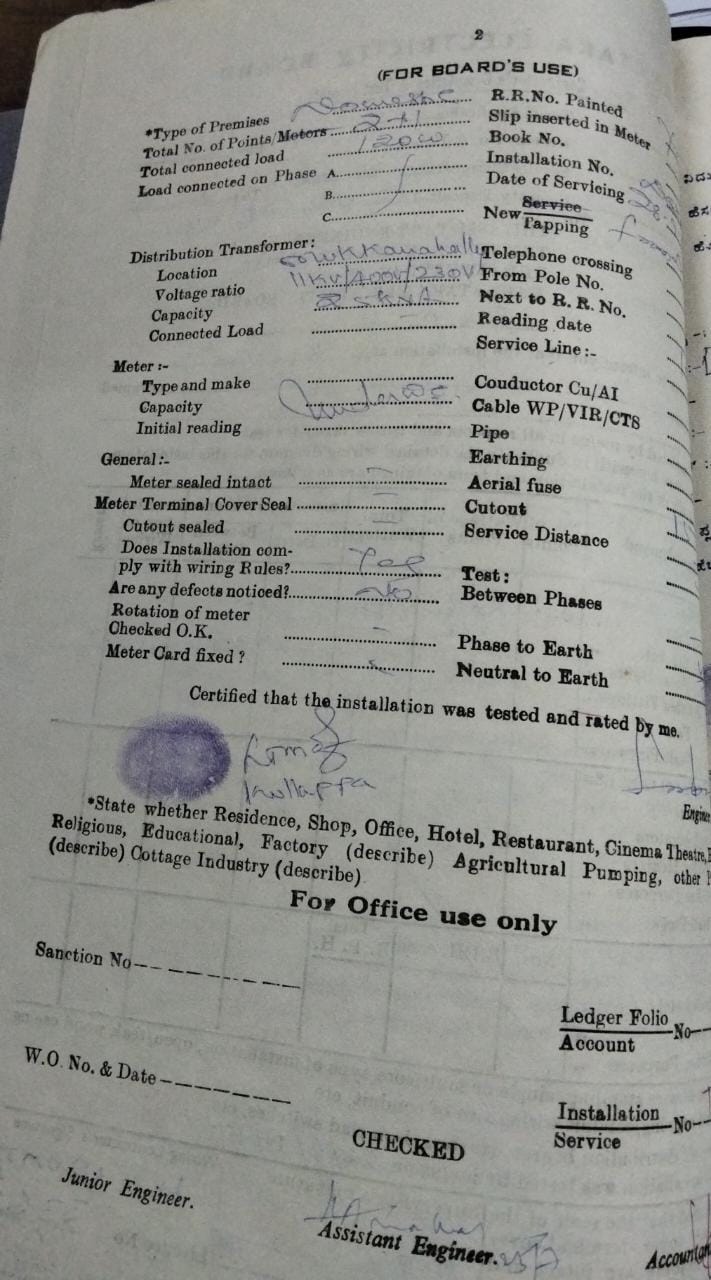 2
(FOR BOARD'S USE)
*Type of Premises Domestic R.R.No. Painted
Total No. of Points/Motors 2+1 Slip inserted in Meter
Total connected load 120W Book No.
Load connected on Phase A. Installation No.
B. Date of Servicing
C. New Service
Tapping
Distribution Transformer:
Location Telephone crossing
Voltage ratio 11KV/400V/230V From Pole No.
Capacity 25KVA Next to R. R. No.
Connected Load Reading date
Service Line:-
Meter :-
Type and make Couductor Cu/AI
Capacity Cable WP/VIR/CTS
Initial reading Pipe
General :- Earthing
Meter sealed intact – Aerial fuse
Meter Terminal Cover Seal – Cutout
Cutout sealed – Service Distance
Does Installation com-
ply with wiring Rules? Yes Test :
Are any defects noticed? No Between Phases
Rotation of meter
Checked O.K. – Phase to Earth
Meter Card fixed ? Neutral to Earth
Certified that the installation was tested and rated by me.
LTM of
Kullappa
*State whether Residence, Shop, Office, Hotel, Restaurant, Cinema Theatre,
Religious, Educational, Factory (describe) Agricultural Pumping, other
(describe) Cottage Industry (describe)
For Office use only
Sanction No
Ledger Folio
Account No
W.O. No. & Date
Installation
Service No
CHECKED
Junior Engineer.
Assistant Engineer.